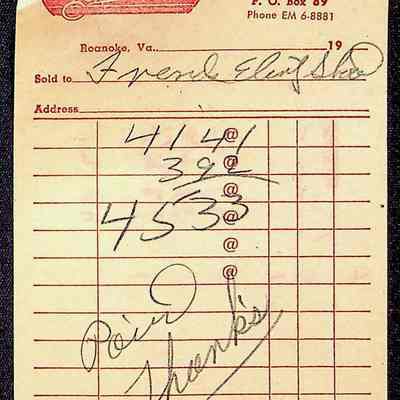 P. O. Box 89
Phone EM 6-8881
Roanoke, Va. 19
Sold to Friend
Address
4141 @
392 @
@
4533 @
@
@
Paid
Thanks